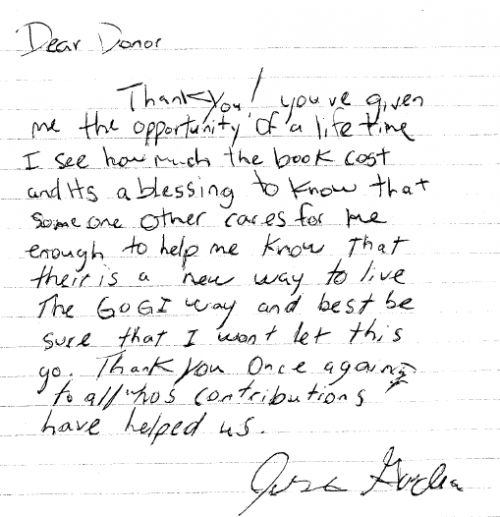 Dear Donor
Thankyou! you've given
me the opportunity of a life time
I see how much the book cost
and its a blessing to know that
Some one other cares for me
enough to help me know That
their is a new way to live
The GOGI way and best be
sure that I wont let this
go. Thank you Once again
to all who's contributions
have helped us.